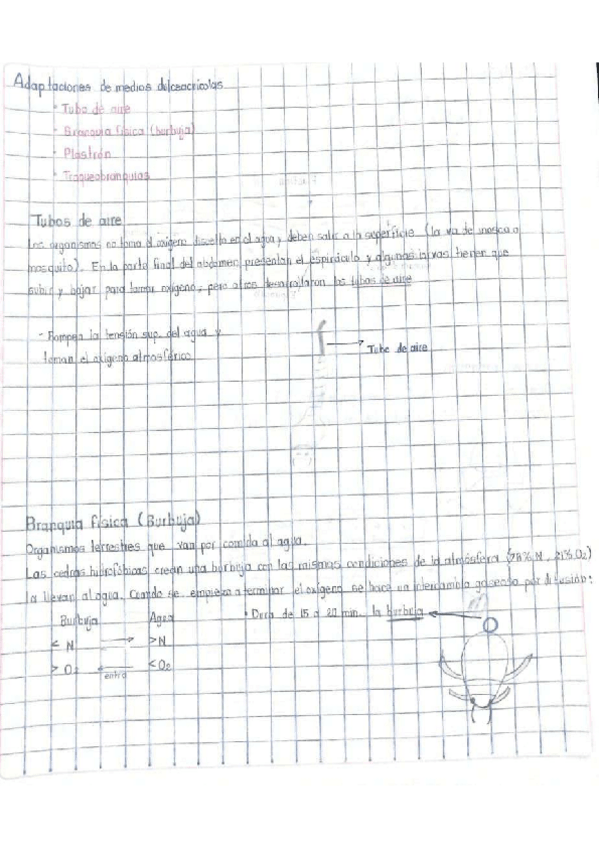 Adaptaciones de medios dulceacuícolas
• Tubo de aire
• Branquia física (burbuja)
• Plastrón
• Traqueobranquias
Tubos de aire
Los organismos no toma el oxígeno disuelto en el agua, deben salir a la superficie (larva de mosca o
mosquito). En la parte final del abdomen presentan el espiráculo y algunas larvas tienen que
subir y bajar para tomar oxígeno, pero otros desarrollaron los tubos de aire
- Rompen la tensión sup. del agua y
toman el oxígeno atmosférico
Tubo de aire
Branquia física (Burbuja)
Organismos terrestres que van por comida al agua.
Las cedras hidrofóbicas crean una burbuja con las mismas condiciones de la atmósfera (78% N, 21% O2)
la llevan al agua. Cuando se empieza a terminar el oxígeno se hace un intercambio gaseoso por difusión:
Burbuja Agua • Dura de 15 a 20 min. la burbuja
< N → > N
> O2 ← < O2
entra